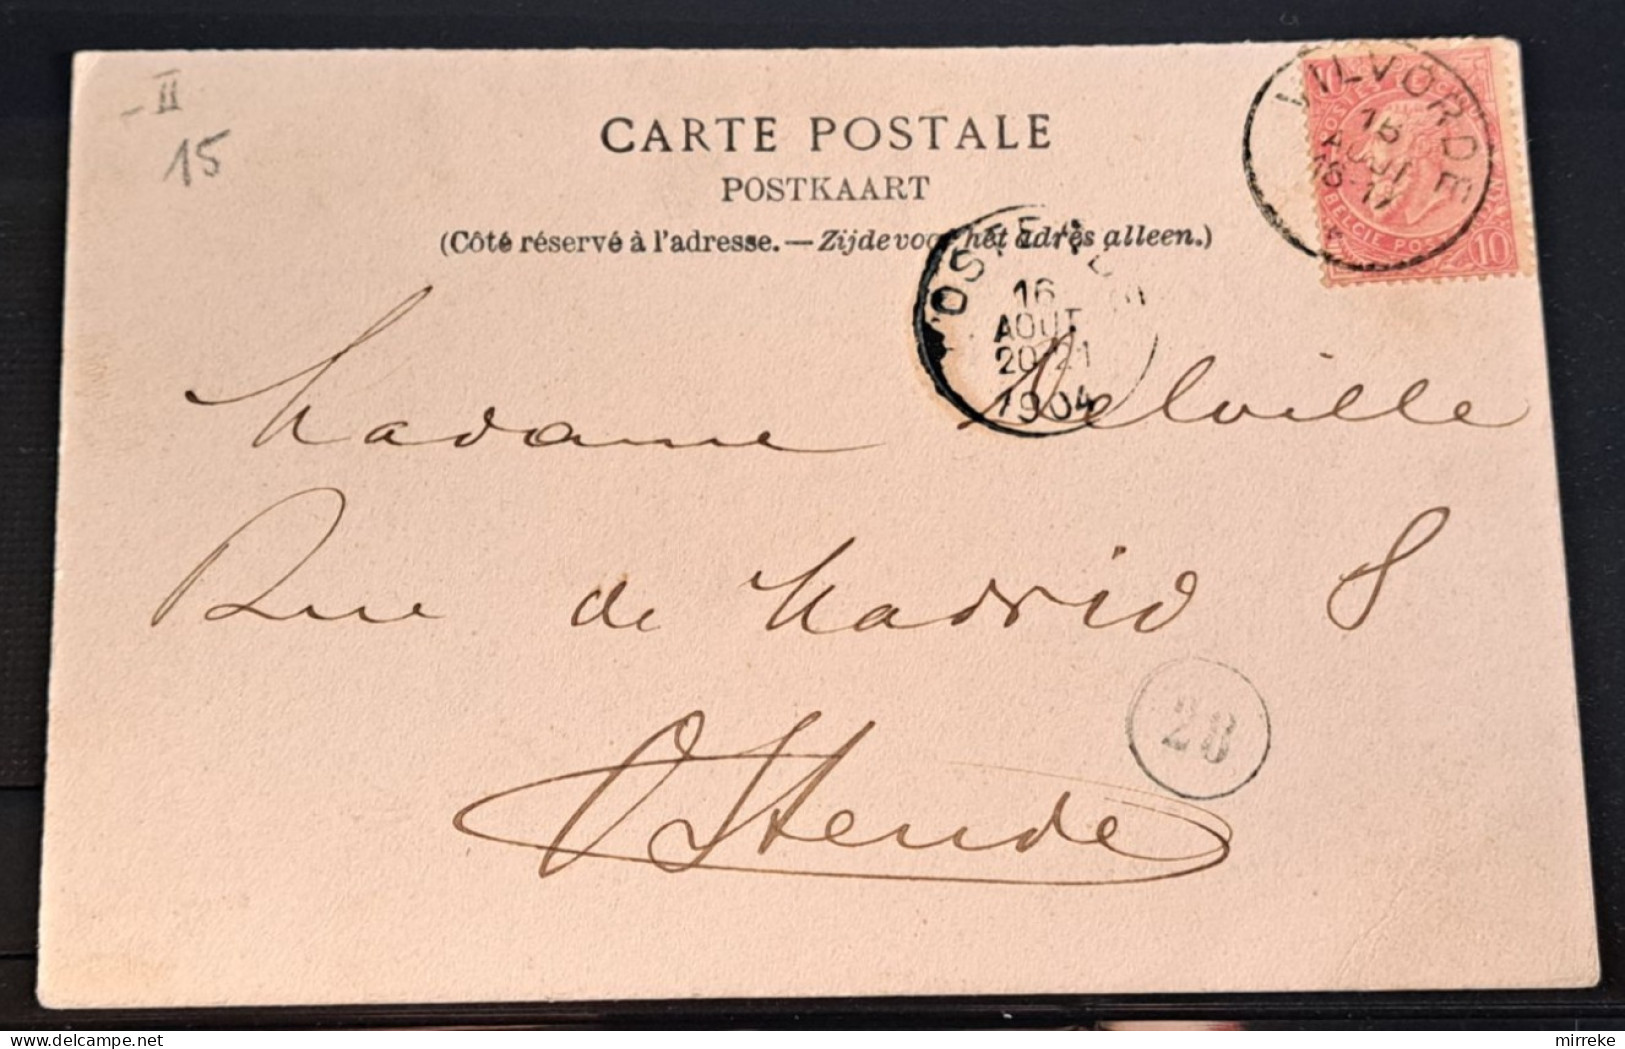 II
15
CARTE POSTALE
POSTKAART
(Côté réservé à l'adresse. — Zijde voor het adres alleen.)
VILVORDE
16
AOUT
BELGIE POSTERIJEN
10
OSTENDE
16
AOUT
20-21
1904
Madame Melville
Rue de Madrid 8
Ostende
28
mirreke